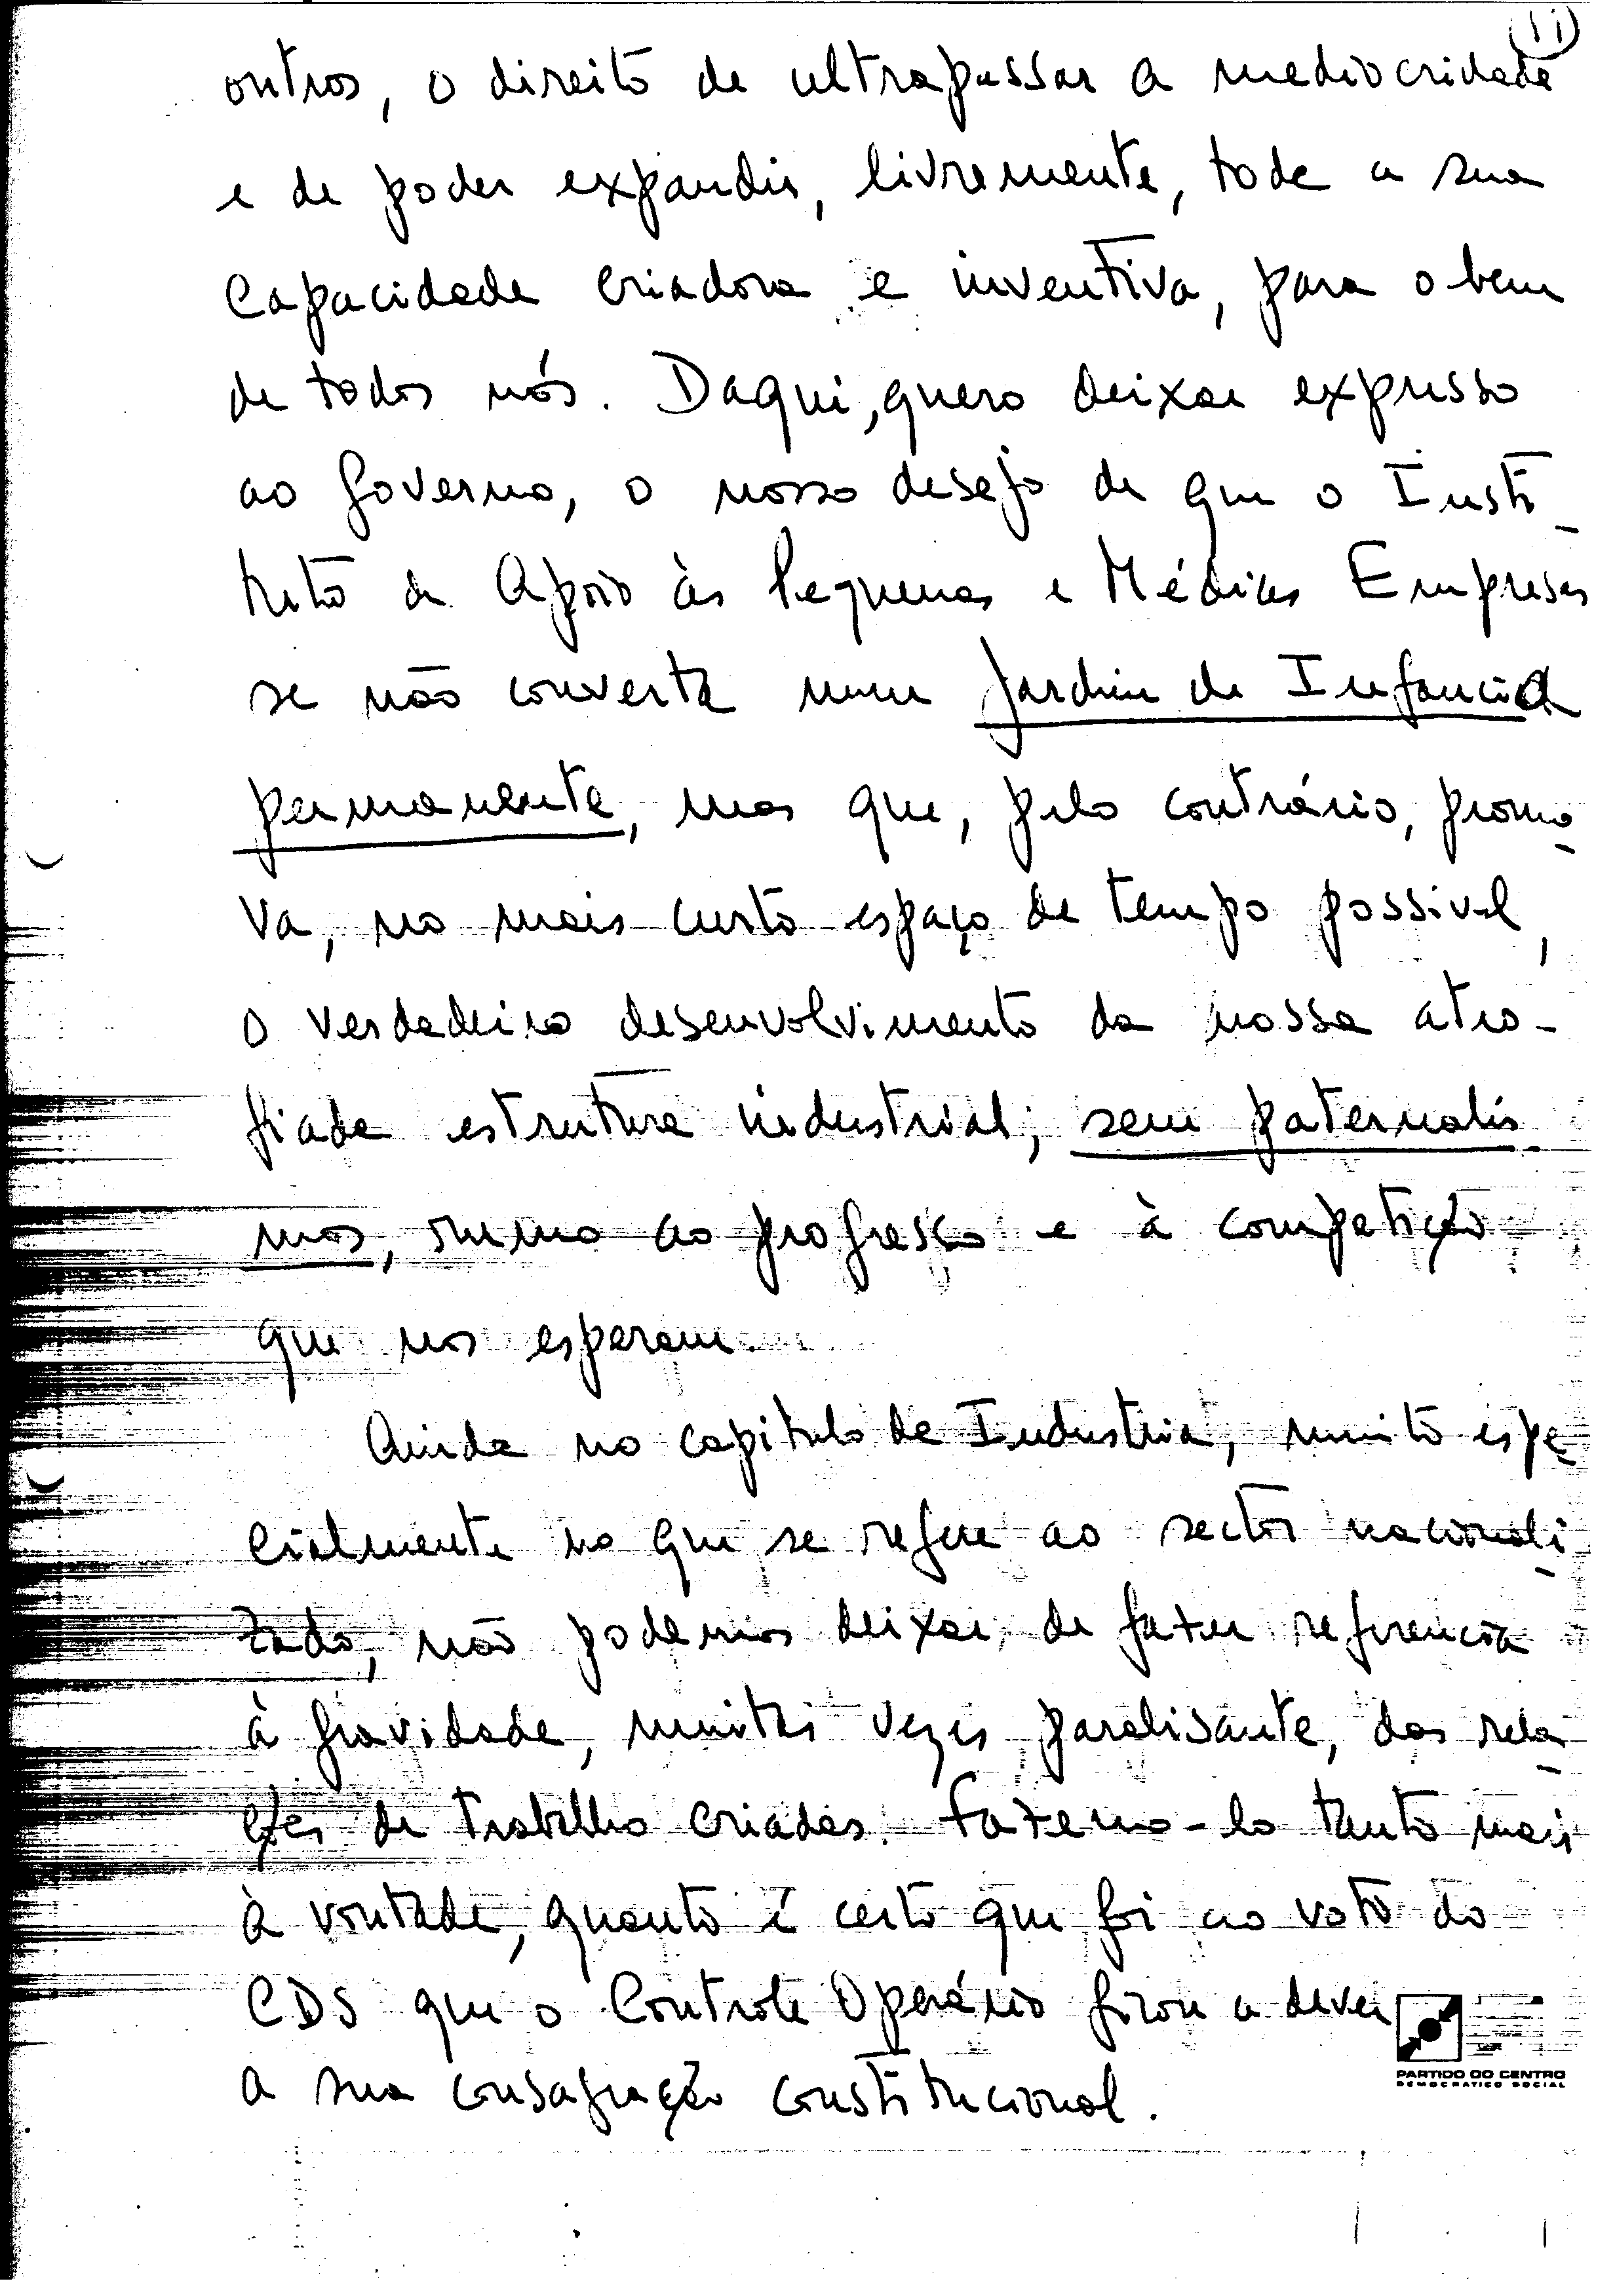 11
outros, o direito de ultrapassar a mediocridade
e de poder expandir, livremente, toda a sua
capacidade criadora e inventiva, para o bem
de todos nós. Daqui, quero deixar expresso
ao Governo, o nosso desejo de que o Insti-
tuto de Apoio às Pequenas e Médias Empresas
se não converta num Jardim de Infancia
permanente, mas que, pelo contrário, promo-
va, no mais curto espaço de tempo possivel,
o verdadeiro desenvolvimento da nossa atro-
fiada estrutura industrial, sem paternalis-
mos, rumo ao progresso e à competição
que nos esperam.
Ainda no capitulo de Industria, muito espe-
cialmente no que se refere ao sector nacionali-
zado, não podemos deixar, de fazer referencia
à gravidade, muitas vezes paralisante, das rela-
ções de trabalho criadas. Fazemo-lo tanto mais
à vontade, quanto é certo que foi ao voto do
CDS que o Controle Operário ficou a dever
a sua consagração constitucional.
PARTIDO DO CENTRO
DEMOCRATICO SOCIAL